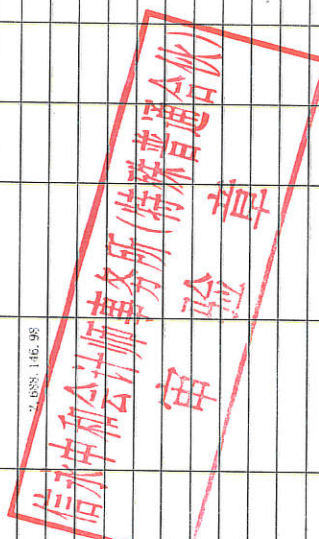 7,688,146.98
信永中和会计师事务所(特殊普通合伙)
审验章